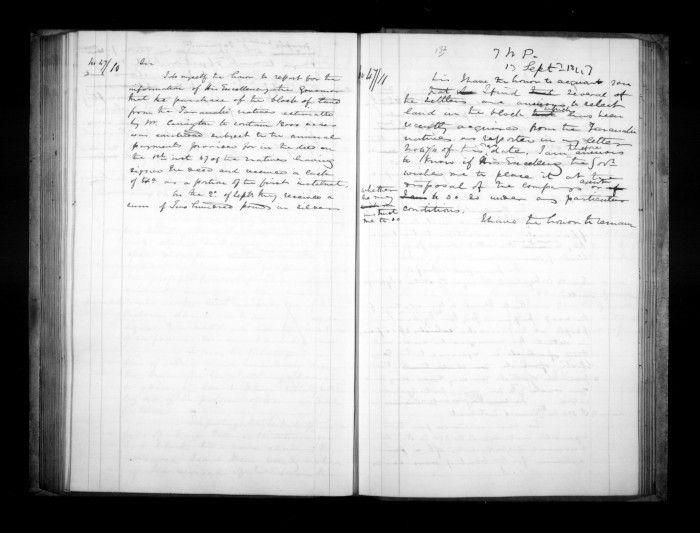 No 47/10
Sir
I do myself the honor to report for the
information of His Excellency the Governor
that the purchase of the block of land
from the Taranaki natives estimated
by Mr. Carrington to contain acres
was subject to the annual
payments provided for in the deed on
the 1st inst 47 of the natives having
signed the deed and received a
of as a portion of the first instalment.
On the 2d of Septr they received a
sum of Two hundred pounds as
No 47/11
N P
17 Sept 1847
Sir I have the honor to acquaint you
that I find several of
the settlers are anxious to select
land in the block which has been
recently acquired from the Taranaki
natives as reported in my letter
of this date. I am anxious
to know if His Excellency the Govr
wishes me to place it at the
disposal of the company or
to do so under any particular
conditions.
whether
he may
instruct
me to do
I have the honor to remain